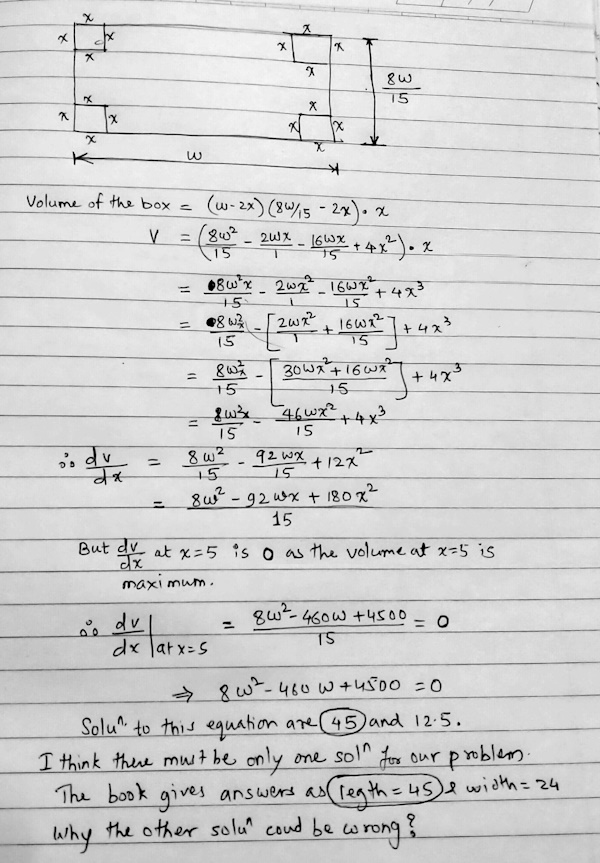 x x
x x x x
x x
8w/15
x x
x x x x
x x
w
Volume of the box = (w-2x)(8w/15 - 2x). x
V = (8w²/15 - 2wx/1 - 16wx/15 + 4x²). x
= 8w²x/15 - 2wx²/1 - 16wx²/15 + 4x³
= 8w²x/15 - [2wx²/1 + 16wx²/15] + 4x³
= 8w²x/15 - [30wx²+16wx²/15] + 4x³
= 8w²x/15 - 46wx²/15 + 4x³
∴ dv/dx = 8w²/15 - 92wx/15 + 12x²
= 8w² - 92wx + 180x²/15
But dv/dx at x=5 is 0 as the volume at x=5 is
maximum.
∴ dv/dx | at x=5 = 8w²-460w+4500/15 = 0
⇒ 8w²-460w+4500 = 0
Soluⁿ. to this equation are 45 and 12.5.
I think there must be only one solⁿ for our problem.
The book gives answers as legth = 45 & width = 24
Why the other soluⁿ coud be wrong?